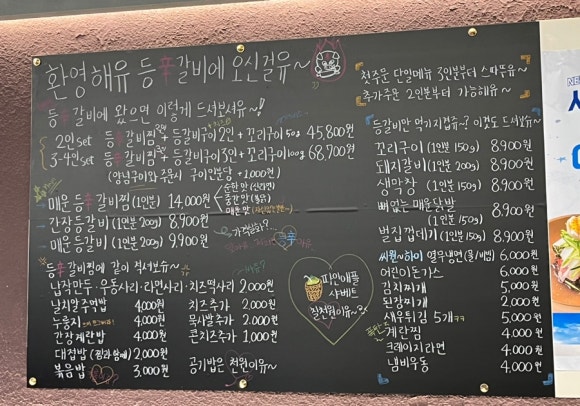 환영해유 등辛갈비에 오신걸유~
등辛갈비에 왔으면 이렇게 드셔보셔유~!
2인set 등辛갈비찜2인 + 등갈비구이2인 + 꼬리구이50g 45,800원
3-4인set 등辛갈비찜 + 등갈비구이3인 + 꼬리구이100g 68,700원
(양념구이와 주문시 구이인분당 +1,000원)
매운 등辛갈비찜 (1인분) 14,000원
순한 맛 (신라면)
중간 맛 (불닭)
매운 맛
간장 등갈비 (1인분 200g) 8,900원
매운 등갈비 (1인분 200g) 9,900원
등辛갈비찜에 같이 적셔보슈~
납작만두·우동사리·라면사리·치즈떡사리 2,000원
날치알 주먹밥 4,000원
누룽지 4,000원
간장계란밥 4,000원
대접밥 2,000원
볶음밥 3,000원
치즈추가 2,000원
묵사발추가 2,000원
콘치즈추가 1,000원
공기밥은 천원이유~
첫주문 단일메뉴 3인분부터 스따뚜유~
추가주문 2인분부터 가능해유~
등갈비만 먹기지겹쥬~? 이것도 드셔보슈~
꼬리구이 (1인분 150g) 8,900원
돼지갈비 (1인분 200g) 8,900원
생막창 (1인분 150g) 8,900원
뼈없는 매운닭발
(1인분 150g) 8,900원
벌집껍데기 (1인분 150g) 8,900원
씨원~하이 열무냉면 (물/비빔) 6,000원
어린이돈가스 6,000원
김치찌개 5,000원
된장찌개 2,000원
새우튀김 5개 5,000원
계란찜 4,000원
크레이지라면 4,000원
냄비우동 4,000원
파인애플
샤베트
칠천원이유~